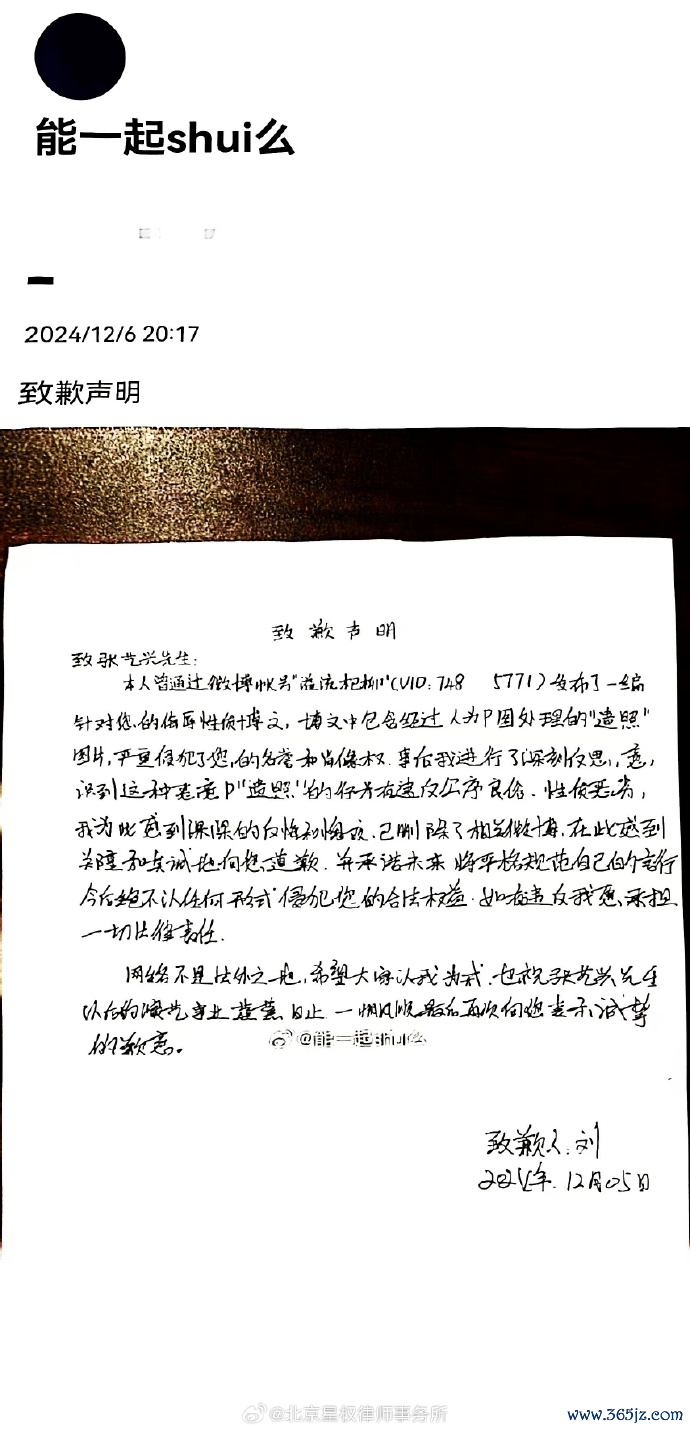 能一起shui么
2024/12/6 20:17
致歉声明
致歉声明
致张艺兴先生:
本人曾通过微博帐号"溢流杞柳"(UID:748 5771)发布了一编
针对您的侮辱性质博文,博文中包含经过人为P图处理的"遗照"
图片,严重侵犯了您的名誉和肖像权.事后我进行了深刻反思,意
识到这种恶意P"遗照"的行为有违反公序良俗、性质恶劣,
我为此感到深深的自悔,已删除了相关微博.在此感到
并真诚地向您道歉.并承诺未来将严格规范自己的言行
今后绝不以任何形式侵犯您的合法权益.如有违反我愿承担
一切法律责任.
网络不是法外之地,希望大家以我为戒.也祝张艺兴先生
以后的演艺事业蒸蒸日上 一帆风顺 最后再次向您表示诚挚
的歉意。
@能一起shui么
致歉人:刘
2024年.12月05日
@北京星权律师事务所
www.365jz.com